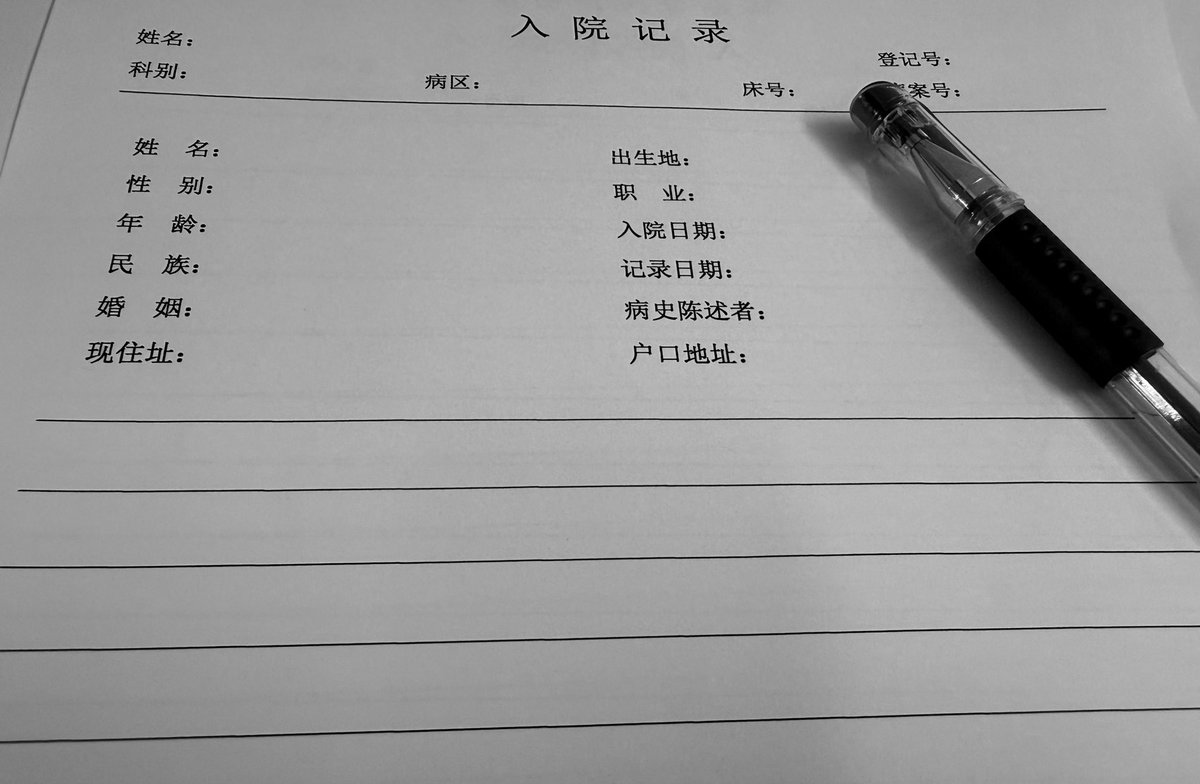 入院记录
姓名： 登记号：
科别： 病区： 床号： 案号：
姓 名： 出生地：
性 别： 职 业：
年 龄： 入院日期：
民 族： 记录日期：
婚 姻： 病史陈述者：
现住址： 户口地址：